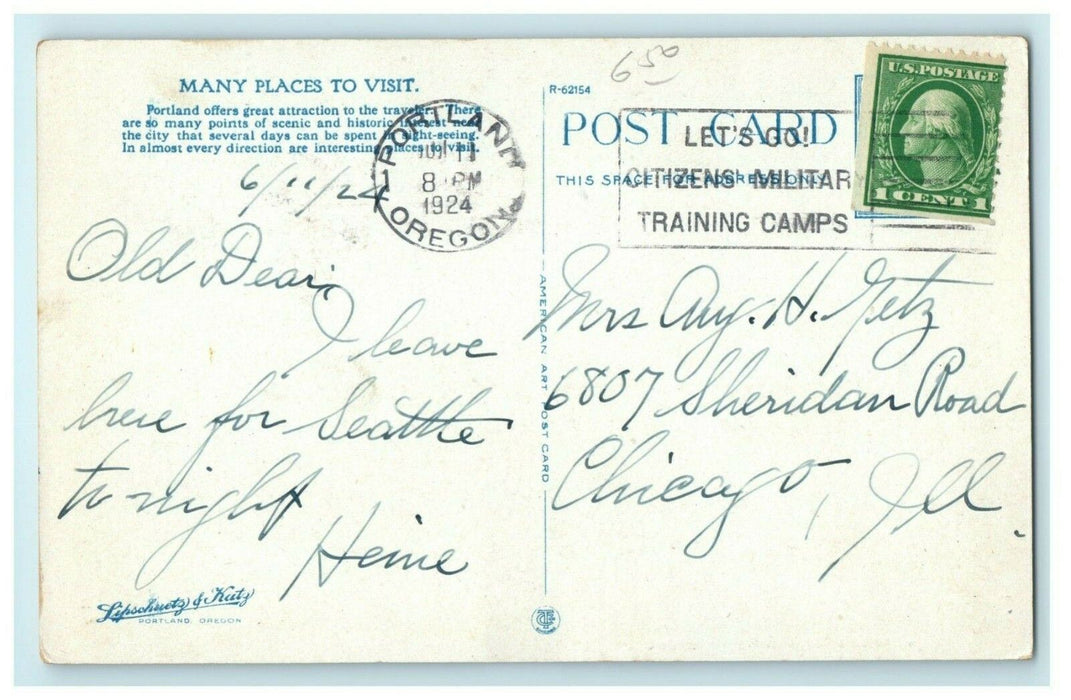 MANY PLACES TO VISIT.
Portland offers great attraction to the traveler. There
are so many points of scenic and historic interest near
the city that several days can be spent in sight-seeing.
In almost every direction are interesting places to visit.
6/11/24
Old Dear:
I leave
here for Seattle
to-night
Heine
Lipschuetz & Katz
PORTLAND, OREGON
PORTLAND
JUN 11
8 PM
1924
OREGON
AMERICAN ART POST CARD
6.50
R-62154
POST CARD
THIS SPACE FOR ADDRESS ONLY
LET'S GO!
CITIZENS MILITARY
TRAINING CAMPS
U.S. POSTAGE
1 CENT 1
Mrs Aug. H. Getz
6807 Sheridan Road
Chicago, Ill.